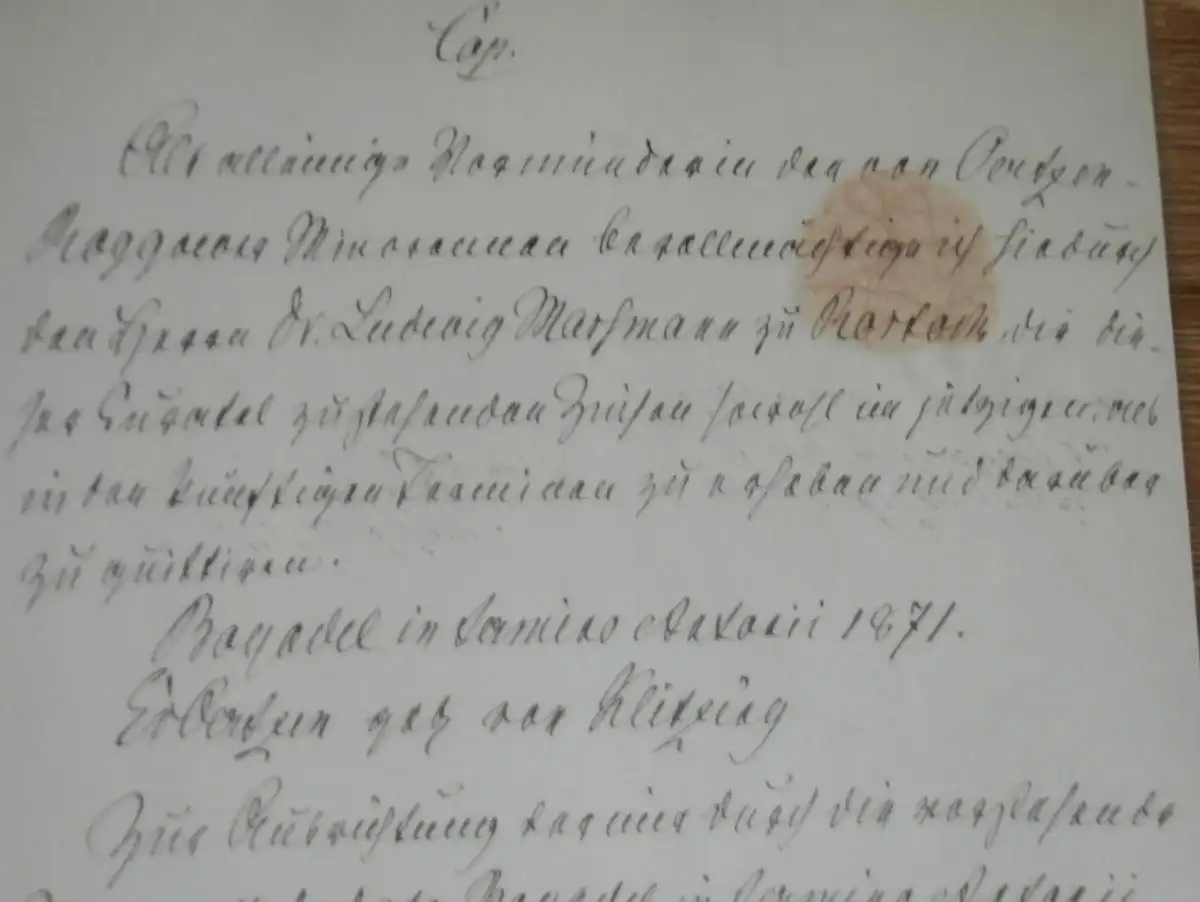 Cop.
Als alleinige Vormünderin der von Oertzen-
Roggower Minorennen bevollmächtige ich hiedurch
den Herrn Dr. Ludwig Marsmann zu Rostock, die die-
ser Curatel zustehenden Zinsen sowohl im jetzigen, als
in den künftigen Terminen zu erheben und darüber
zu quittiren.
in termino Antonii 1871.
Oertzen geb von Klitzing
Zur Ausrichtung der mir durch die vorstehende
in termino Antonii